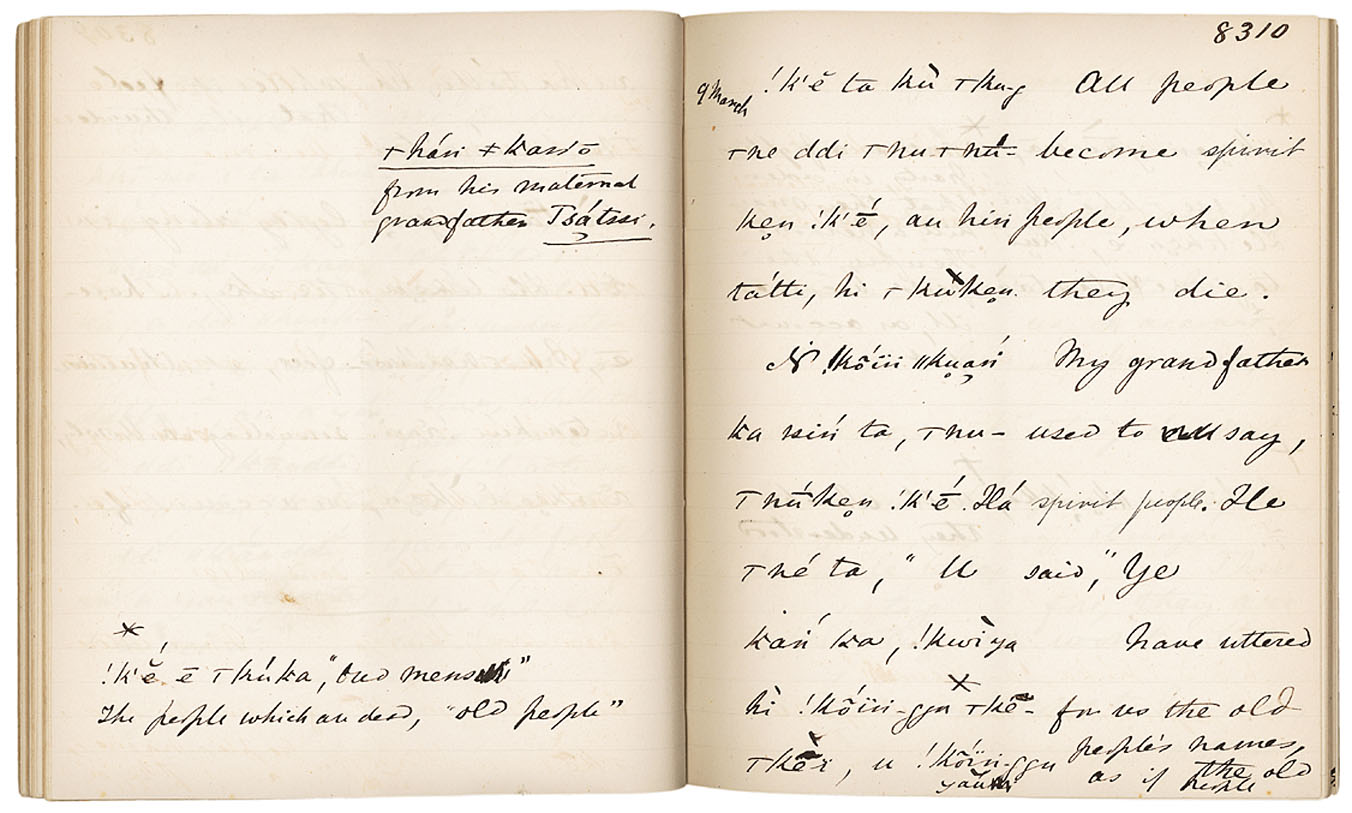 ꞇháń ǂkassō
from his maternal
grandfather Tsátssi.
×
!k'ḗ ē ꞇkúka, "oud mens"
The people which are dead, "old people"
8310
9 March
!k'ĕ ta kù ꞇku-g All people
ꞇne ddi ꞇnu ꞇnŭ- become spirit
ken !k'ḗ, au hin people, when
tátti, hi ꞇkùken. they die.
Ń !kõïn ǁkuań My grandfather
ka siń ta, ꞇnu- used to say,
ꞇnúken !k'ḗ. Há spirit people. He
ꞇné ta, "U said, "Ye
kań ka, !kwì ya have uttered
hì !kóïn-ggu ꞇkē- for us the old
ꞇkḕĭ, u !kõïn-ggu people's names,
as if the old
people